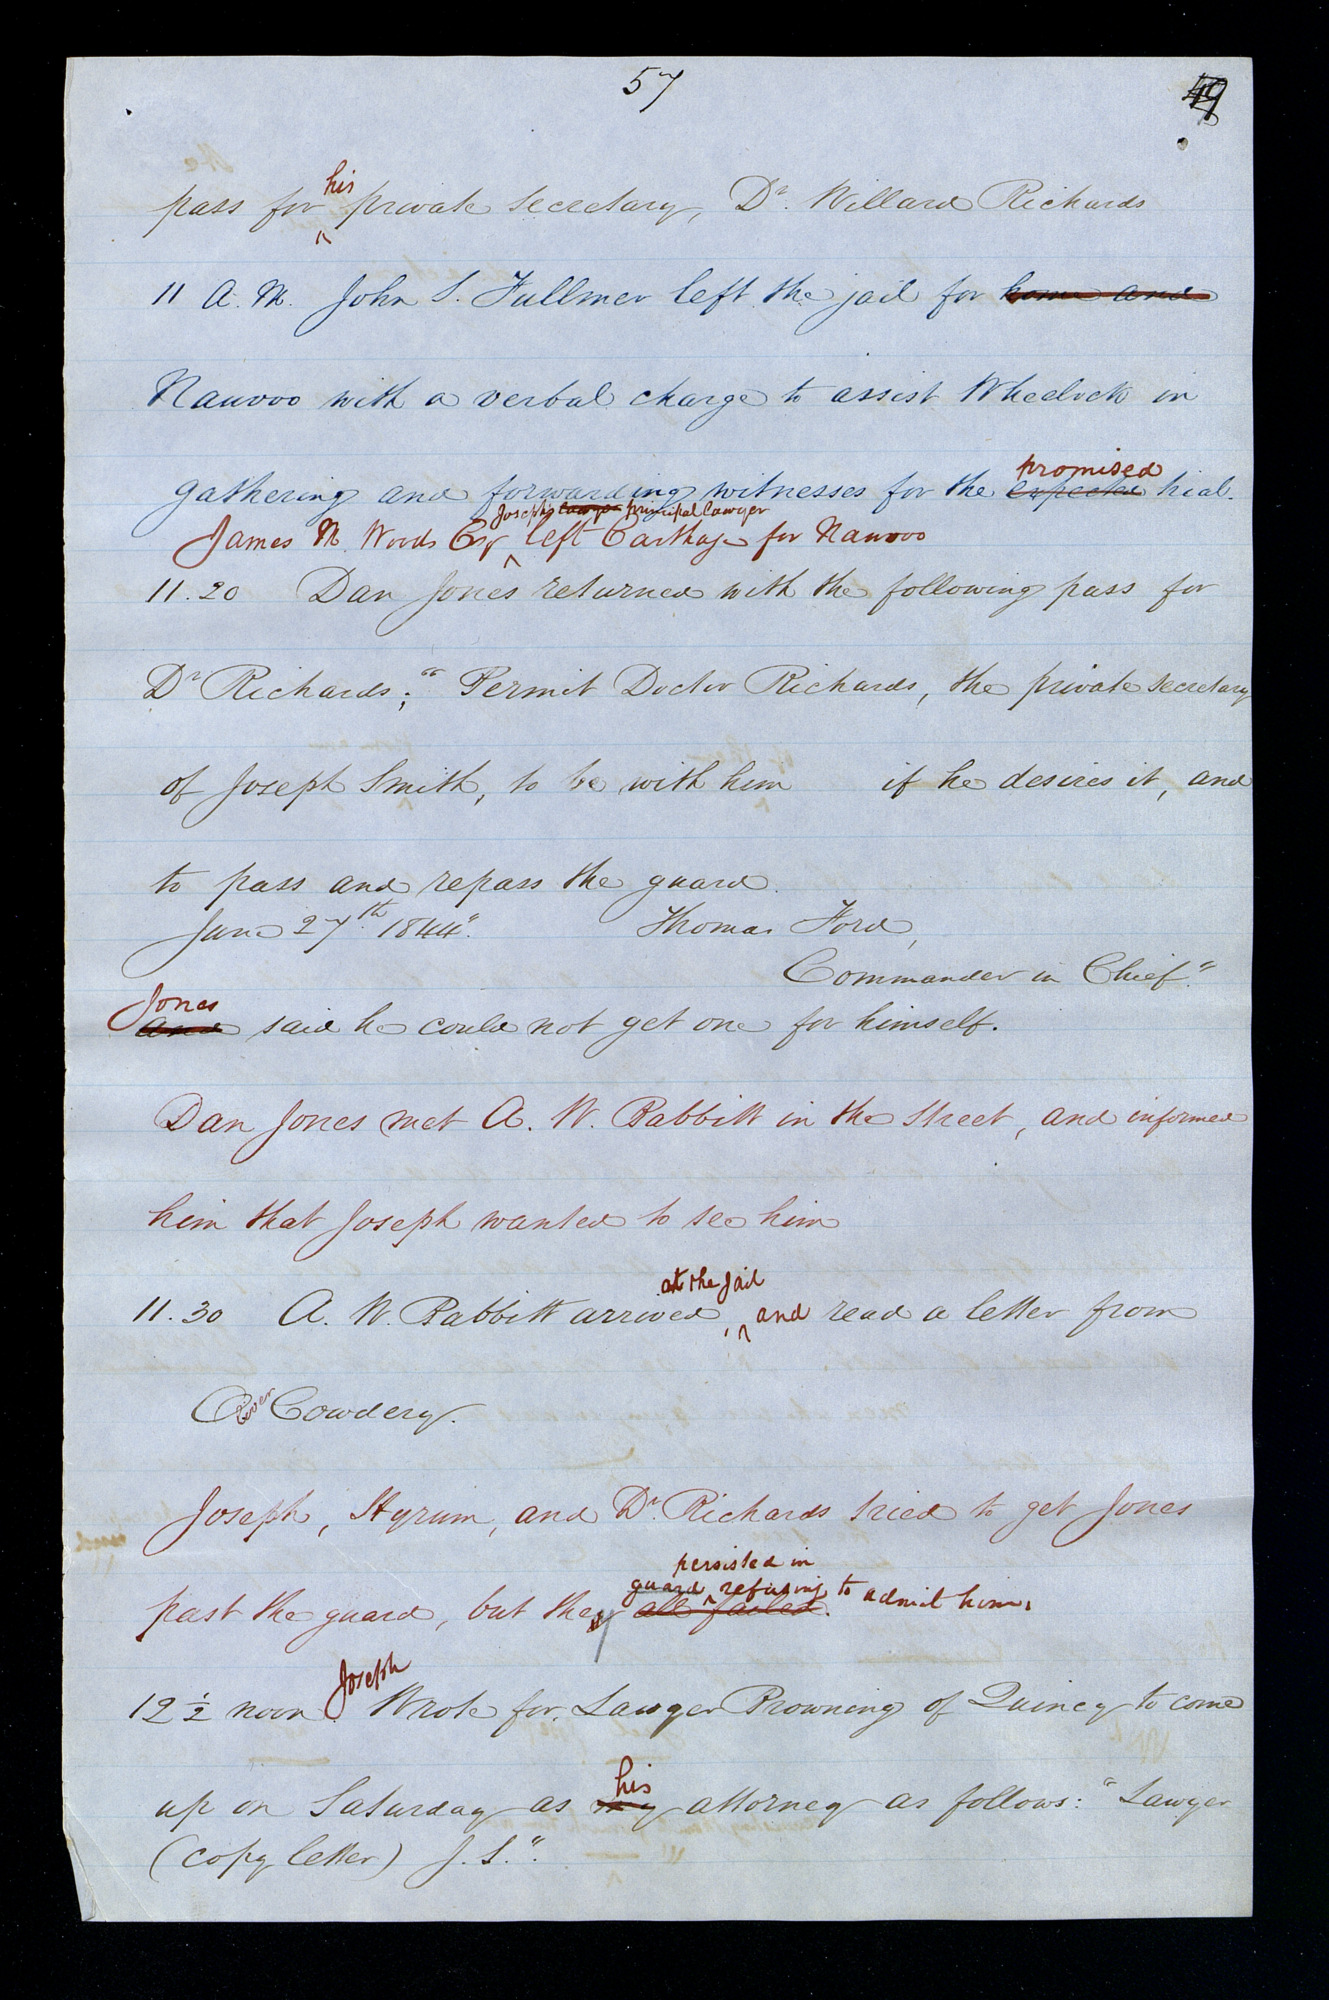 57
49
his
pass for private secretary, Dr. Willard Richards
11 A. M. John S. Fullmer left the jail for home and
Nauvoo with a verbal charge to assist Wheelock in
promised
gathering and forwarding witnesses for the expected trial.
Joseph's lawyer principal lawyer
James W. Woods Esqr left Carthage for Nauvoo
11.20 Dan Jones returned with the following pass for
Dr Richards; "Permit Doctor Richards, the private secretary
of Joseph Smith, to be with him if he desires it, and
to pass and repass the guard.
June 27th. 1844". Thomas Ford,
Commander in Chief."
Jones
and said he could not get one for himself.
Dan Jones met A. W. Babbitt in the street, and informed
him that Joseph wanted to see him
at the jail
11.30 A. W. Babbitt arrived, and read a letter from
Oliver Cowdery.
Joseph, Hyrum, and Dr. Richards tried to get Jones
persisted in
guard refusing to admit him.
past the guard, but they all failed.
Joseph
12 1/2 noon. Wrote for Lawyer Browning of Quincy to come
his
up on Saturday as my attorney as follows: "Lawyer
(copy letter) J. S.".